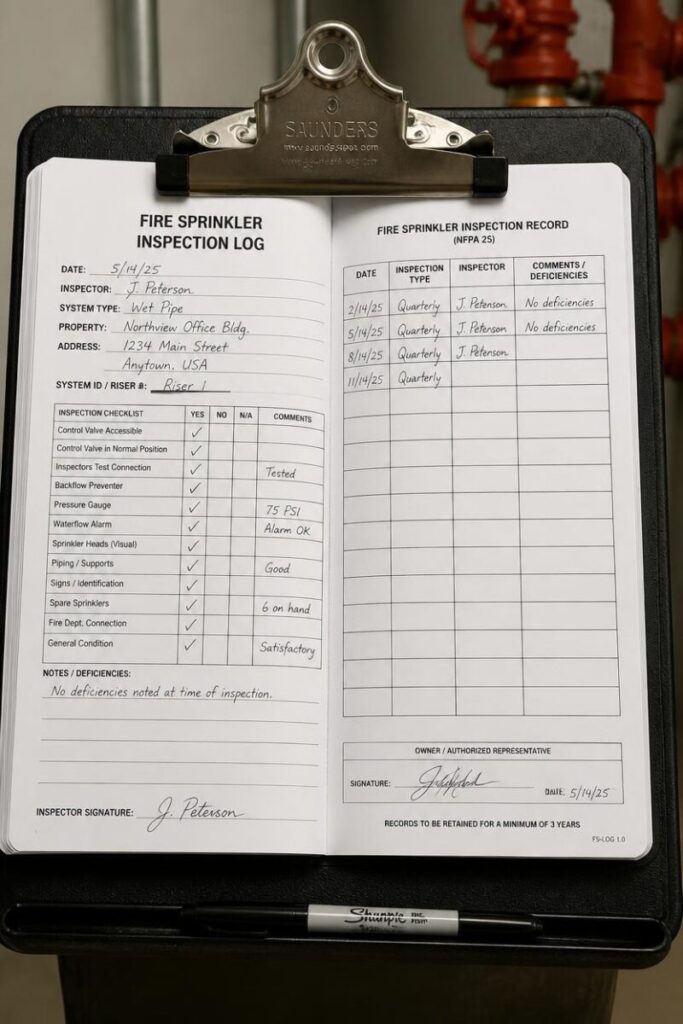 SAUNDERS
FIRE SPRINKLER
INSPECTION LOG
DATE: 5/14/25
INSPECTOR: J. Peterson
SYSTEM TYPE: Wet Pipe
PROPERTY: Northview Office Bldg.
ADDRESS: 1234 Main Street
Anytown, USA
SYSTEM ID / RISER #: Riser 1
INSPECTION CHECKLIST YES NO N/A COMMENTS
Control Valve Accessible ✓
Control Valve in Normal Position ✓
Inspectors Test Connection ✓ Tested
Backflow Preventer ✓
Pressure Gauge ✓ 75 PSI
Waterflow Alarm ✓ Alarm OK
Sprinkler Heads (Visual) ✓
Piping / Supports ✓ Good
Signs / Identification ✓
Spare Sprinklers ✓ 6 on hand
Fire Dept. Connection ✓
General Condition ✓ Satisfactory
NOTES / DEFICIENCIES:
No deficiencies noted at time of inspection.
INSPECTOR SIGNATURE: J. Peterson
FIRE SPRINKLER INSPECTION RECORD
(NFPA 25)
DATE INSPECTION TYPE INSPECTOR COMMENTS / DEFICIENCIES
2/14/25 Quarterly J. Peterson No deficiencies
5/14/25 Quarterly J. Peterson No deficiencies
8/14/25 Quarterly J. Peterson
11/14/25 Quarterly
OWNER / AUTHORIZED REPRESENTATIVE
SIGNATURE: DATE: 5/14/25
RECORDS TO BE RETAINED FOR A MINIMUM OF 3 YEARS
FS-LOG 1.0
Sharpie